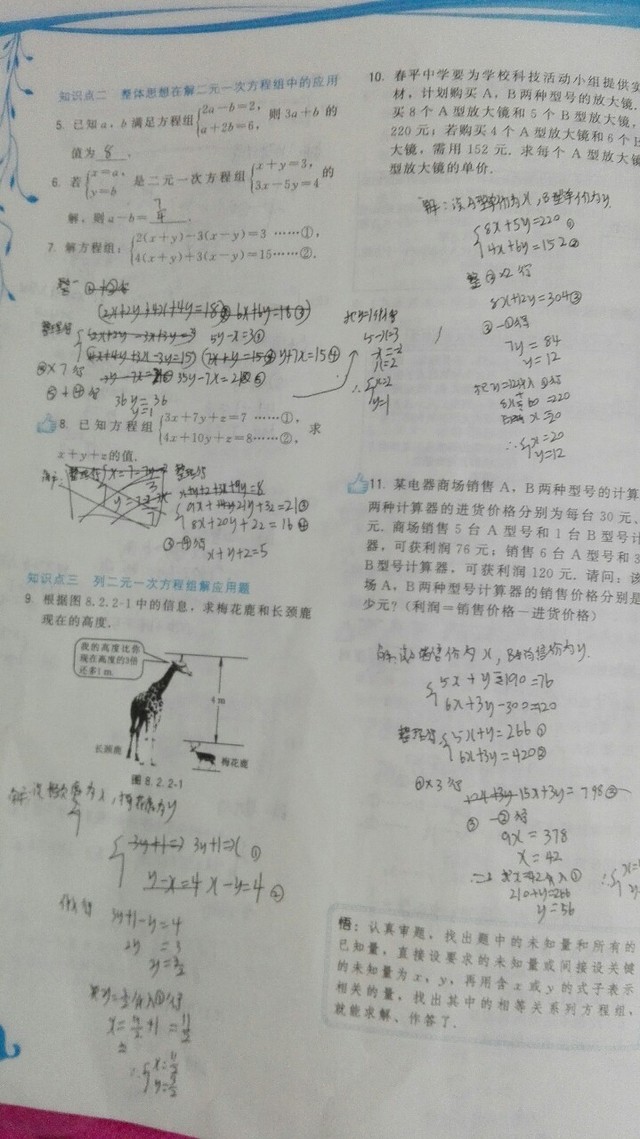 知识点二 整体思想在解二元一次方程组中的应用
5. 已知a,b满足方程组{2a-b=2, a+2b=6, 则3a+b的
值为 8 .
6. 若{x=a, y=b 是二元一次方程组{x+y=3, 3x-5y=4 的
解,则a-b= 7/4 .
7. 解方程组:{2(x+y)-3(x-y)=3 ……①, 4(x+y)+3(x-y)=15……②.
5y-x=3①
7x+y=15
y+7x=15④
③×7得
35y-7x=21⑤
36y=36
y=1
5-x=3
x=2
∴{x=2 y=1
8. 已知方程组{3x+7y+z=7 ……①, 4x+10y+z=8……②, 求
x+y+z的值.
整理得
{9x+21y+3z=21③
8x+20y+2z=16④
③-④得
x+y+z=5
知识点三 列二元一次方程组解应用题
9. 根据图8.2.2-1中的信息,求梅花鹿和长颈鹿
现在的高度.
我的高度比你
现在高度的3倍
还多1 m.
4 m
长颈鹿
梅花鹿
图8.2.2-1
3y+1=x ①
x-y=4 ②
3y+1-y=4
2y=3
y=3/2
x=3/2+1=11/2
∴{x=11/2 y=3/2
10. 春平中学要为学校科技活动小组提供实
材,计划购买A,B两种型号的放大镜.
买8个A型放大镜和5个B型放大镜,
220元;若购买4个A型放大镜和6个B
大镜,需用152元.求每个A型放大镜
型放大镜的单价.
解:设A型单价为x,B型单价为y.
{8x+5y=220 ①
4x+6y=152②
②×2得
8x+12y=304③
③-①得
7y=84
y=12
把y=12代入①得
8x+60=220
x=20
∴{x=20 y=12
11. 某电器商场销售A,B两种型号的计算
两种计算器的进货价格分别为每台30元,
元.商场销售5台A型号和1台B型号计
器,可获利润76元;销售6台A型号和3
B型号计算器,可获利润120元.请问:该
场A,B两种型号计算器的销售价格分别是
少元?(利润=销售价格-进货价格)
解:设A销售价为x,B销售价为y.
{5x+y-190=76
6x+3y-300=120
整理得{5x+y=266①
6x+3y=420②
①×3得
15x+3y=798③
③-②得
9x=378
x=42
把x=42代入①
210+y=266
y=56
悟:认真审题,找出题中的未知量和所有的
已知量,直接设要求的未知量或间接设关键
的未知量为x,y,再用含x或y的式子表示
相关的量,找出其中的相等关系列方程组,
就能求解、作答了.